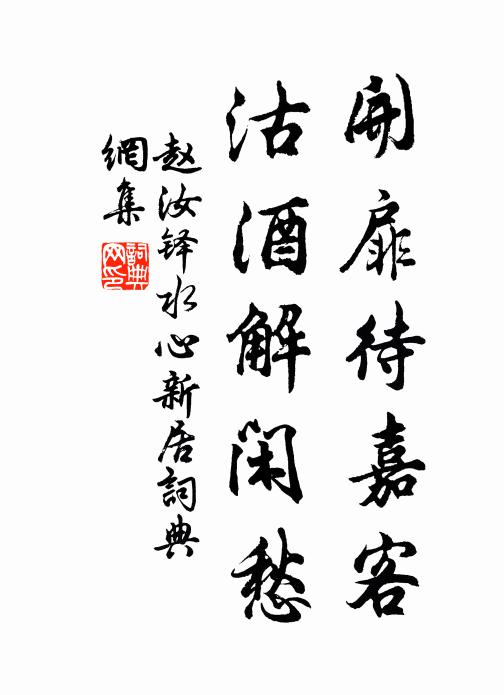 開扉待嘉客
沽酒解閑愁
赵汝铎水心新居詞典
網集
詞典网印